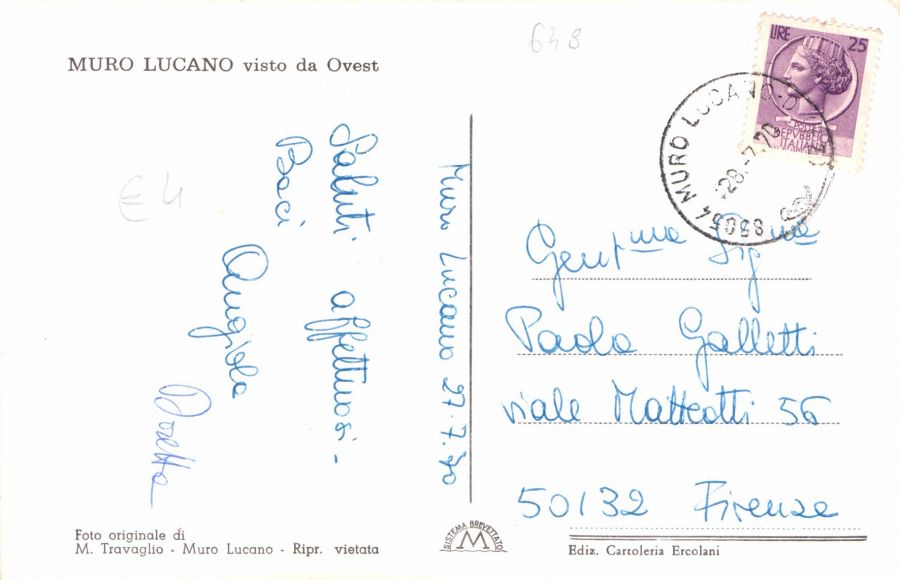 648
MURO LUCANO visto da Ovest
LIRE 25
POSTE
REPVBBLICA
ITALIANA
85054 MURO LUCANO
28.-7.70
€ 4
Muro Lucano 27.7.70
Saluti affettuosi -
Baci
Angiola
Gent ma Sig na
Paola Galletti
viale Matteotti 56
50132 Firenze
Foto originale di
M. Travaglio - Muro Lucano - Ripr. vietata
SISTEMA BREVETTATO
M
Ediz. Cartoleria Ercolani